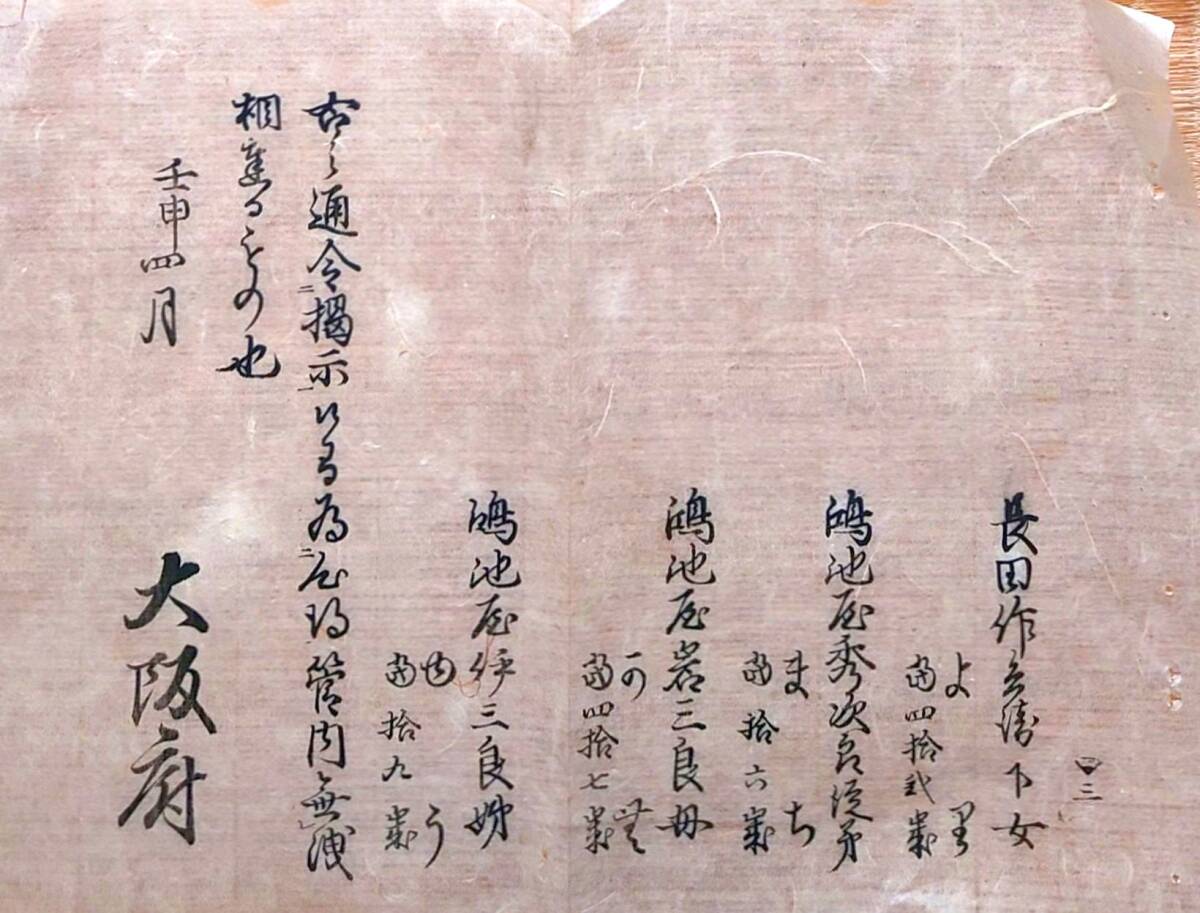 三
長田作兵衛下女
より
當四拾弐歳
鴻池屋秀次郎従弟
まち
當拾六歳
鴻池屋岩三良母
當四拾七歳
鴻池屋伊三良姉
ゆう
當拾九歳
右之通令掲示候間為心得管内無洩
相達るもの也
壬申四月
大阪府